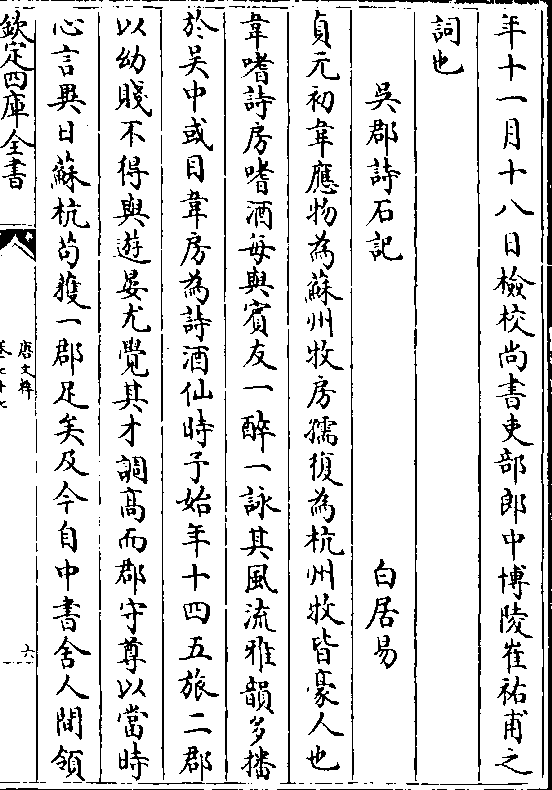 年十一月十八日檢校尚書吏部郎中博陵崔祐甫之
詞也
吳郡詩石記 白居易
貞元初韋應物為蘇州牧房孺復為杭州牧皆豪人也
韋嗜詩房嗜酒每與賓友一醉一詠其風流雅韻多播
於吳中或目韋房為詩酒仙時予始年十四五旅二郡
以幼賤不得與遊宴尤覺其才調高而郡守尊以當時
心言異日蘇杭苟獲一郡足矣及今自中書舍人間領
欽定四庫全書
唐文粹
卷七十七
六